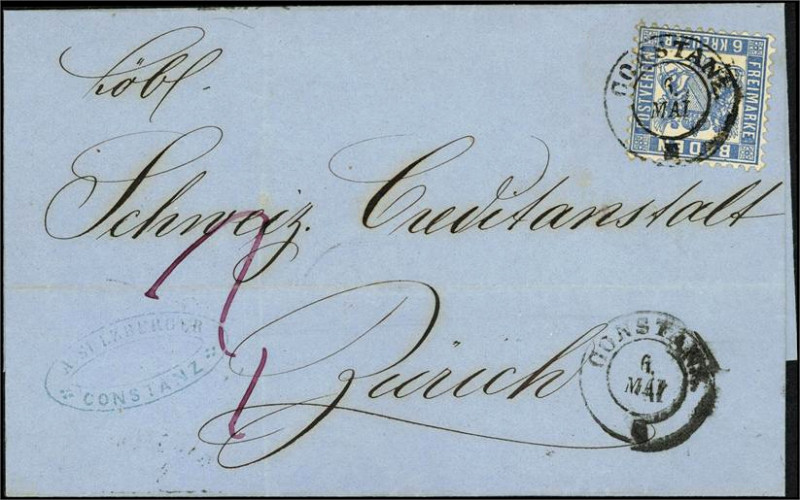 Löbl.
Schweiz. Creditanstalt
Zürich
FREIMARKE
6 KREUZER
BADEN
CONSTANZ
6.
MAI
A. SULZBERGER
CONSTANZ
CONSTANZ
6.
MAI